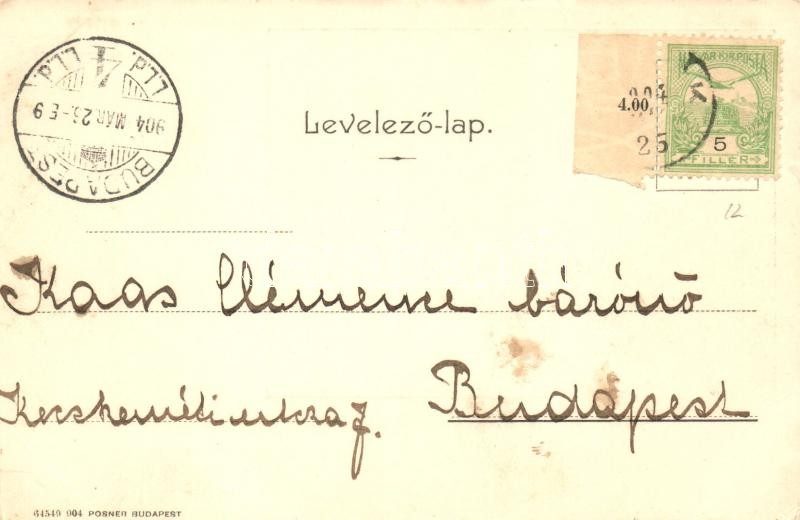 BUDAPEST
904 MÁR. 26 - E 9
4
P.7.7
Levelező-lap.
4.00
904
25
MAGYAR KIR. POSTA
5
FILLER
12
Kaas Clémence bárónő
Budapest
Kecskeméti utcza 7.
64549 904 POSNER BUDAPEST